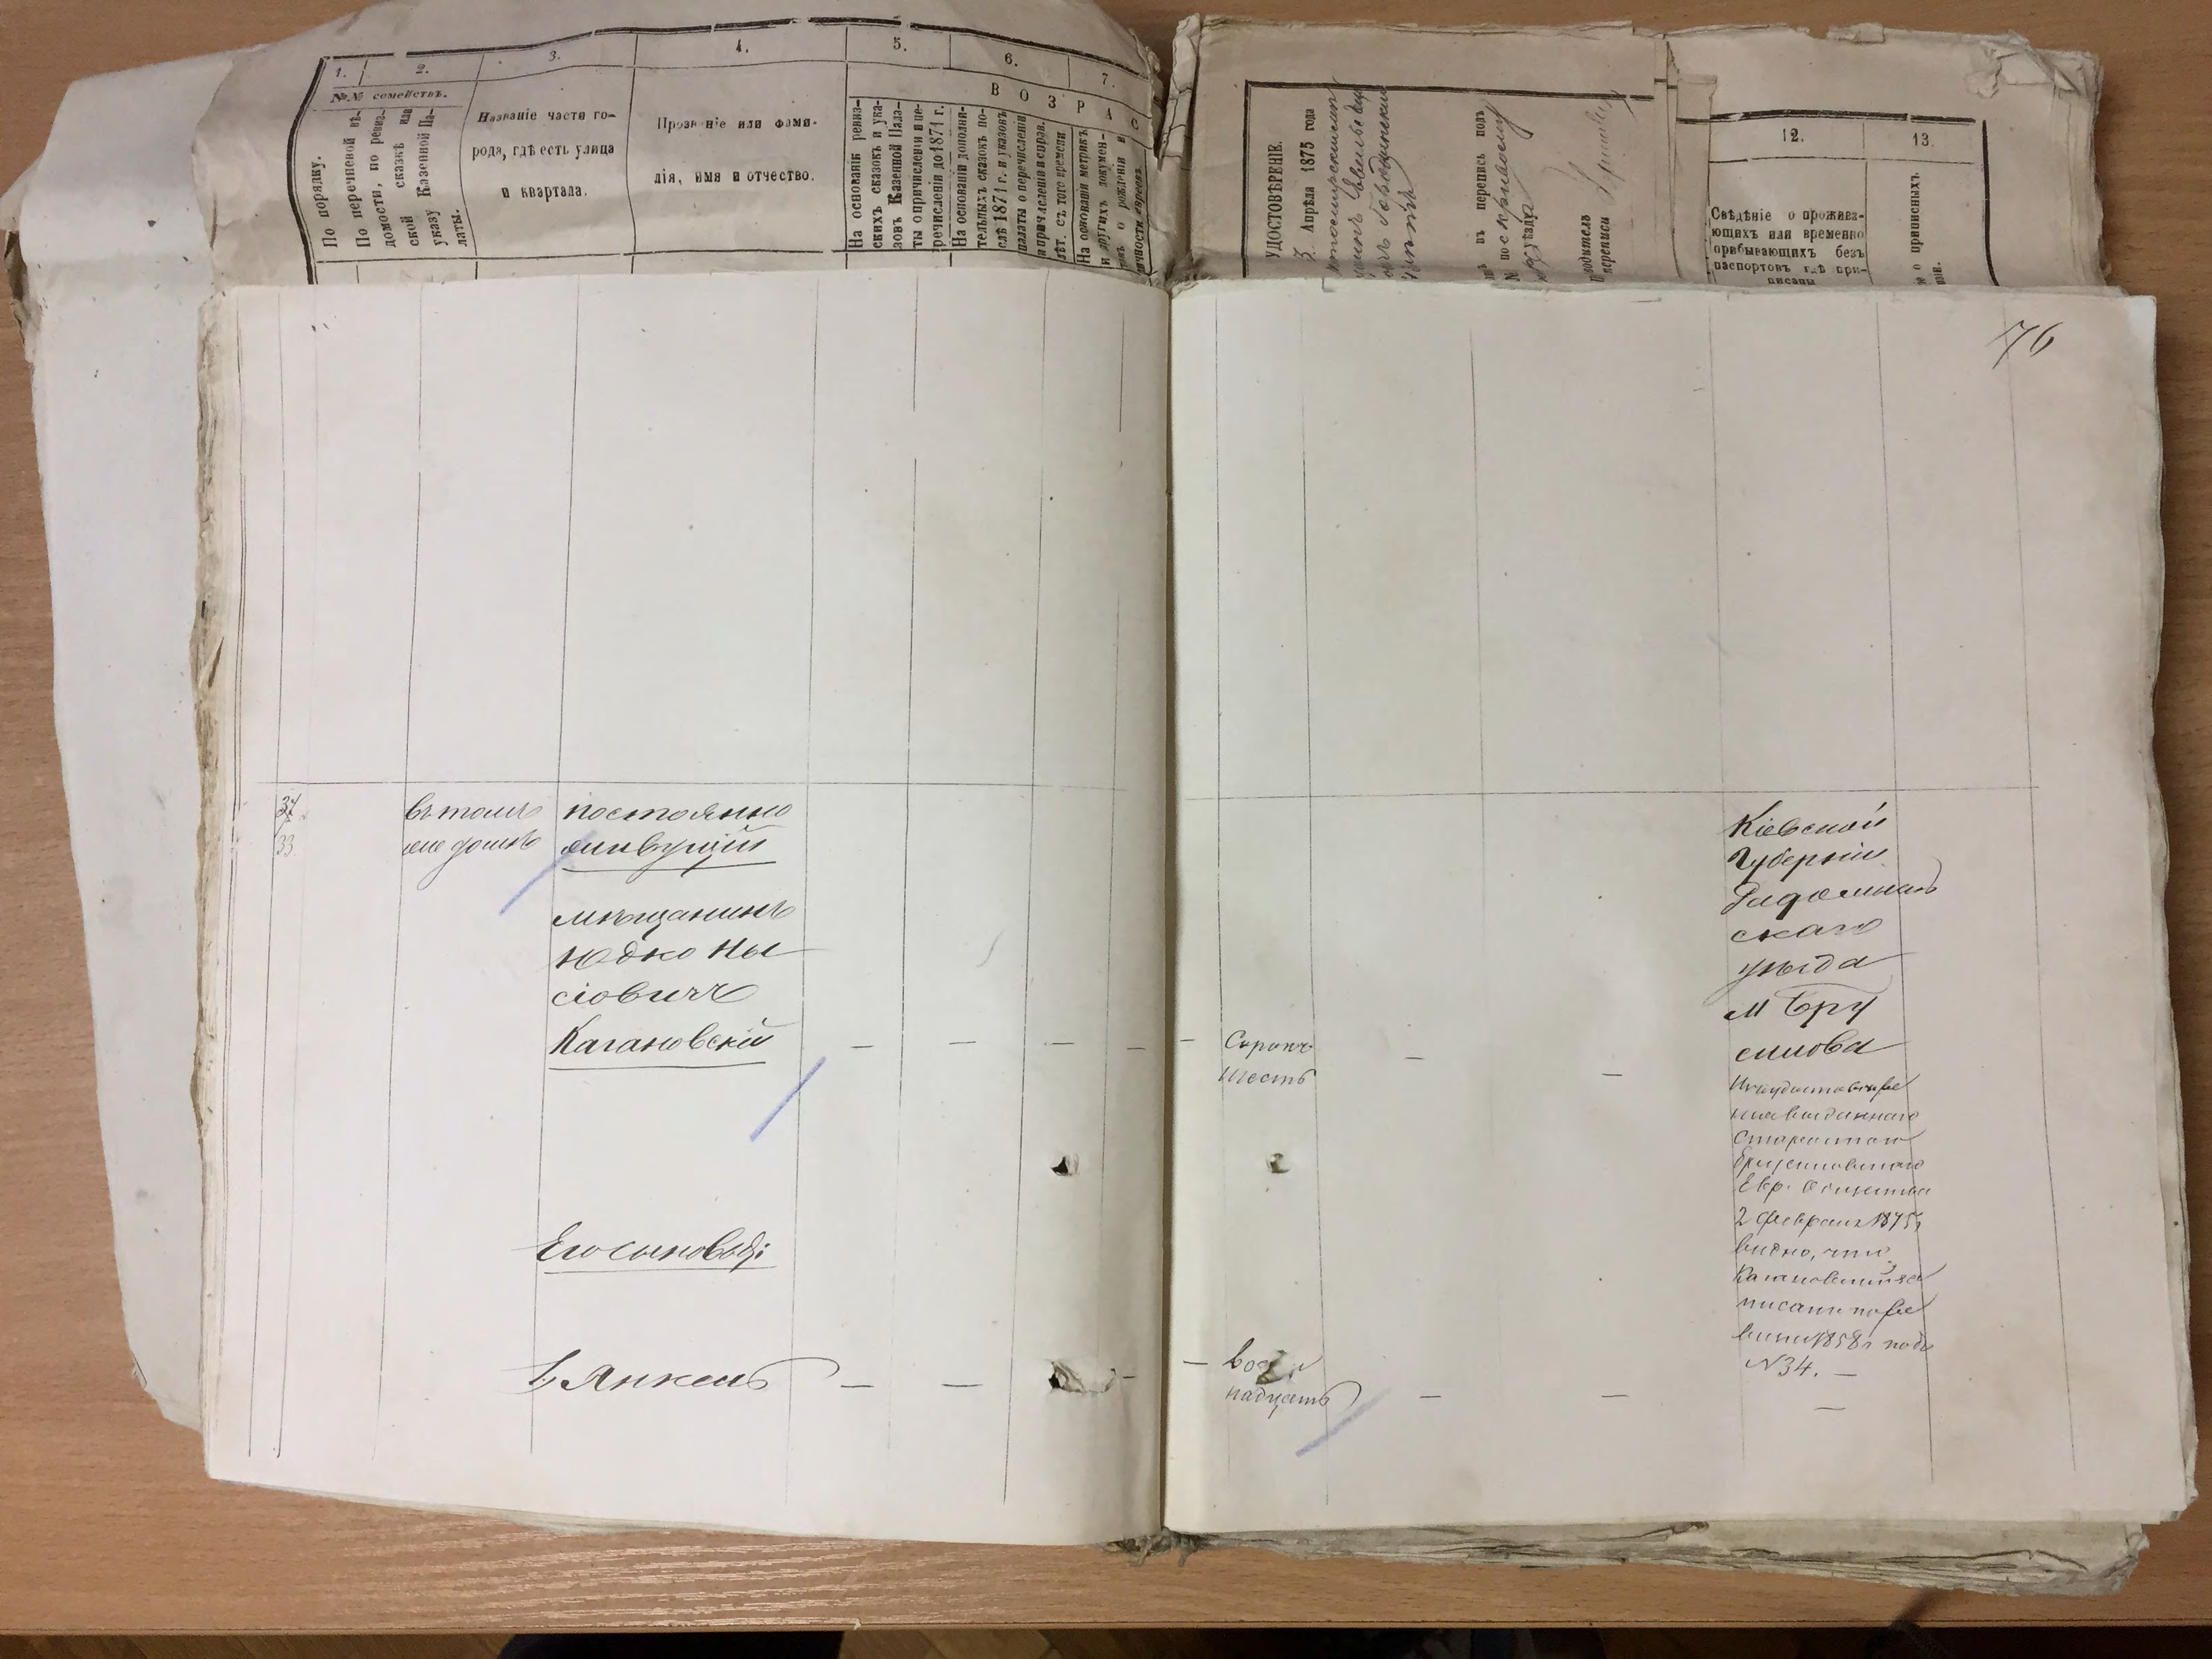 1.
2.
3.
4.
5.
6.
7.
№№ семействъ.
По порядку.
По перечневой вѣ-
домости, по ревиз-
ской сказкѣ или
указу Казенной Па-
латы.
Названіе части го-
рода, гдѣ есть улица
и квартала.
Прозваніе или фами-
лія, имя и отчество.
ВОЗРАС
На основаніи ревиз-
скихъ сказокъ и ука-
зовъ Казенной Пала-
ты о причисленіи и пе-
речисленіи до 1871 г.
На основаніи дополни-
тельныхъ сказокъ по-
слѣ 1871 г. и указовъ
палаты о перечисленіи
и причисленіи и справ.
лѣт. съ того времени
На основаніи метрикъ
и другихъ докумен-
о рожденіи и
личности евреевъ.
УДОСТОВѢРЕНІЕ.
3 Апрѣля 1875 года
въ перепись подъ
№
уѣзда
переписи
12.
13.
Свѣдѣніе о прожива-
ющихъ или временно
прибывающихъ безъ
паспортовъ гдѣ при-
писаны
о приписныхъ
76
37
33
въ томъ
же домѣ
постоянно
живущій
мѣщанинъ
Юдко Ны
сіовичъ
Кагановскій
— — — —
— Сорокъ
шесть
— —
Кіевской
Губерніи
Радомысль
скаго
уѣзда
м Бру
силова
Изъ удостовѣре
нія выданнаго
Старостою
Брусиловскаго
Евр. Общества
2 февраля 1875 г
видно, что
Кагановскій за
писанъ по ре
визіи 1858 г подъ
№ 34. —
Его сыновья:
1, Янкель
— — —
— Вос
надцать
— — —